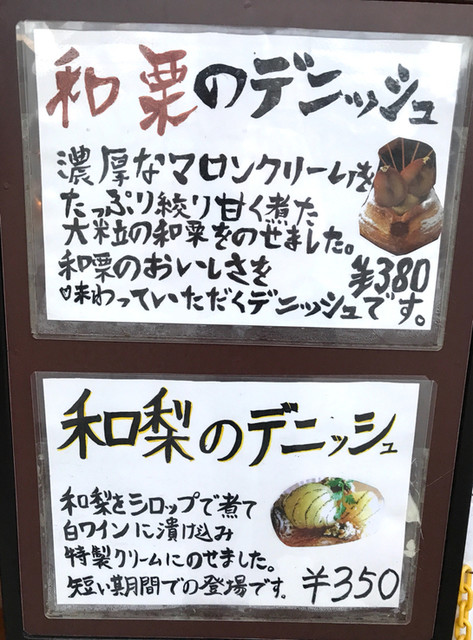 和栗のデニッシュ
濃厚なマロンクリームを
たっぷり絞り甘く煮た
大粒の和栗をのせました。
和栗のおいしさを
♡味わっていただくデニッシュです。
¥380
和梨のデニッシュ
和梨をシロップで煮て
白ワインに漬け込み
特製クリームにのせました。
短い期間での登場です。
¥350